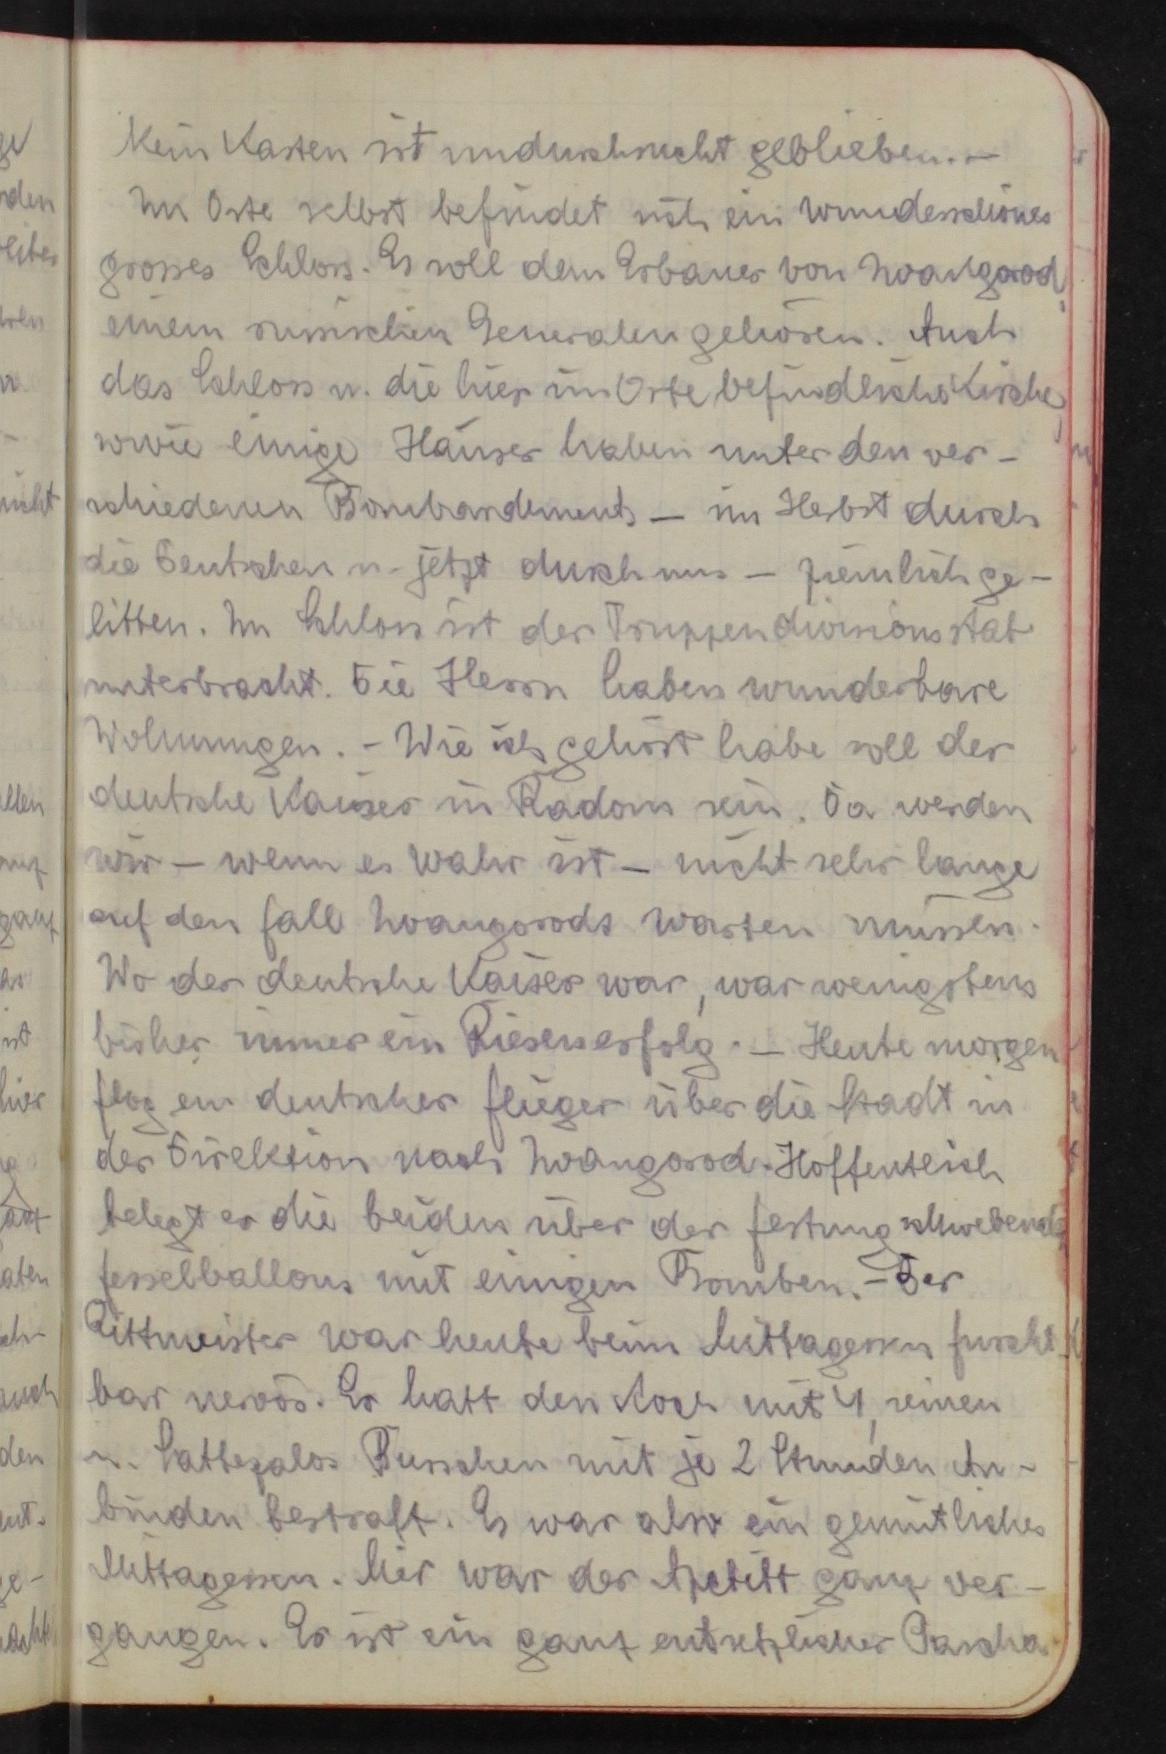 Kein Kasten ist undurchsucht geblieben. –
Im Orte selbst befindet sich ein wunderschönes
grosses Schloss. Es soll dem Erbauer von Iwangorod,
einem russischen Generalen gehören. Auch
das Schloss u. die hier im Orte befindliche Kirche,
sowie einige Häuser haben unter den ver-
schiedenen Bombardements – im Herbst durch
die Deutschen u. jetzt durch uns – ziemlich ge-
litten. Im Schloss ist der Truppendivisionsstab
unterbracht. Die Herrn haben wunderbare
Wohnungen. – Wie ich gehört habe soll der
deutsche Kaiser in Radom sein. Da werden
wir – wenn es wahr ist – nicht sehr lange
auf den Fall Iwangorods warten müssen.
Wo der deutsche Kaiser war, war wenigstens
bisher immer ein Riesenerfolg. – Heute morgen
flog ein deutscher Flieger über die Stadt in
der Direktion nach Iwangorod. Hoffentlich
belegt er die beiden über der Festung schwebende
Fesselballons mit einigen Bomben. – Der
Rittmeister war heute beim Mittagessen furcht-
bar nervös. Er hatt den Koch mit 4, seinen
u. Burschen mit je 2 Stunden An-
binden bestraft. Es war also ein gemütliches
Mittagessen. Mir war der Apetitt ganz ver-
gangen. Er ist ein ganz entsetzlicher Pascha